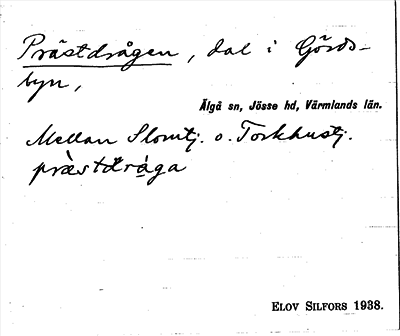 Prästdrågen, dal i Görds-
byn,
Älgå sn, Jösse hd, Värmlands län.
Mellan Slomtj. o. Torkhustj.
pràstdråga
ELOV SILFORS 1938.